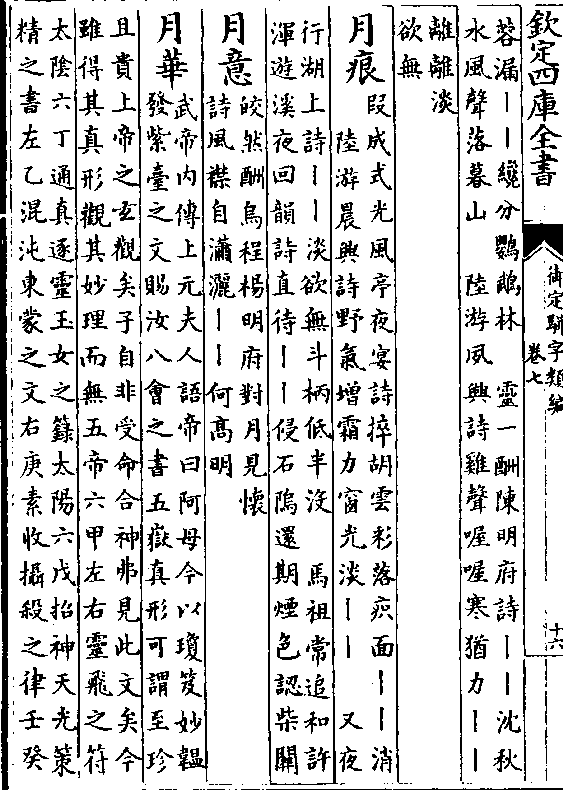 欽定四庫全書
御定駢字類編
卷七
十六
蓉漏丨丨纔分鸚鵡林　靈一酬陳明府詩丨丨沈秋
水風聲落暮山　陸游夙興詩雞聲喔喔寒猶力丨丨
離離淡
欲無
月痕
段成式光風亭夜宴詩捽胡雲彩落疻面丨丨消
陸游晨興詩野氣增霜力窗光淡丨丨　又夜
行湖上詩丨丨淡欲無斗柄低半沒　馬祖常追和許
渾遊溪夜回韻詩直待丨丨侵石隖還期煙色認柴關
月意
皎然酬烏程楊明府對月見懷
詩風襟自瀟灑丨丨何高明
月華
武帝內傳上元夫人語帝曰阿母今以瓊笈妙韞
發紫臺之文賜汝八會之書五嶽真形可謂至珍
且貴上帝之玄觀矣子自非受命合神弗見此文矣今
雖得其真形觀其妙理而無五帝六甲左右靈飛之符
太陰六丁通真逐靈玉女之籙太陽六戊招神天光策
精之書左乙混沌東蒙之文右庚素收攝殺之律壬癸